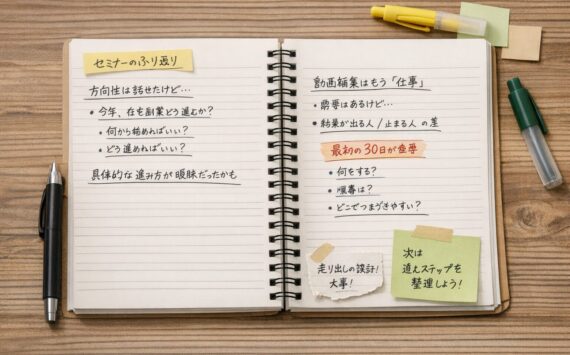 セミナーのふり返り
方向性は話せたけど…
・今年、在宅副業どう進むか?
・何から始めればいい?
・どう進めればいい?
具体的な進み方が曖昧だったかも
動画編集はもう「仕事」
・需要はあるけど…
・結果が出る人/止まる人 の差
最初の30日が重要
・何をする?
・順番は?
・どこでつまづきやすい?
走り出しの設計!
大事!
次は
進みステップを
整理しよう!